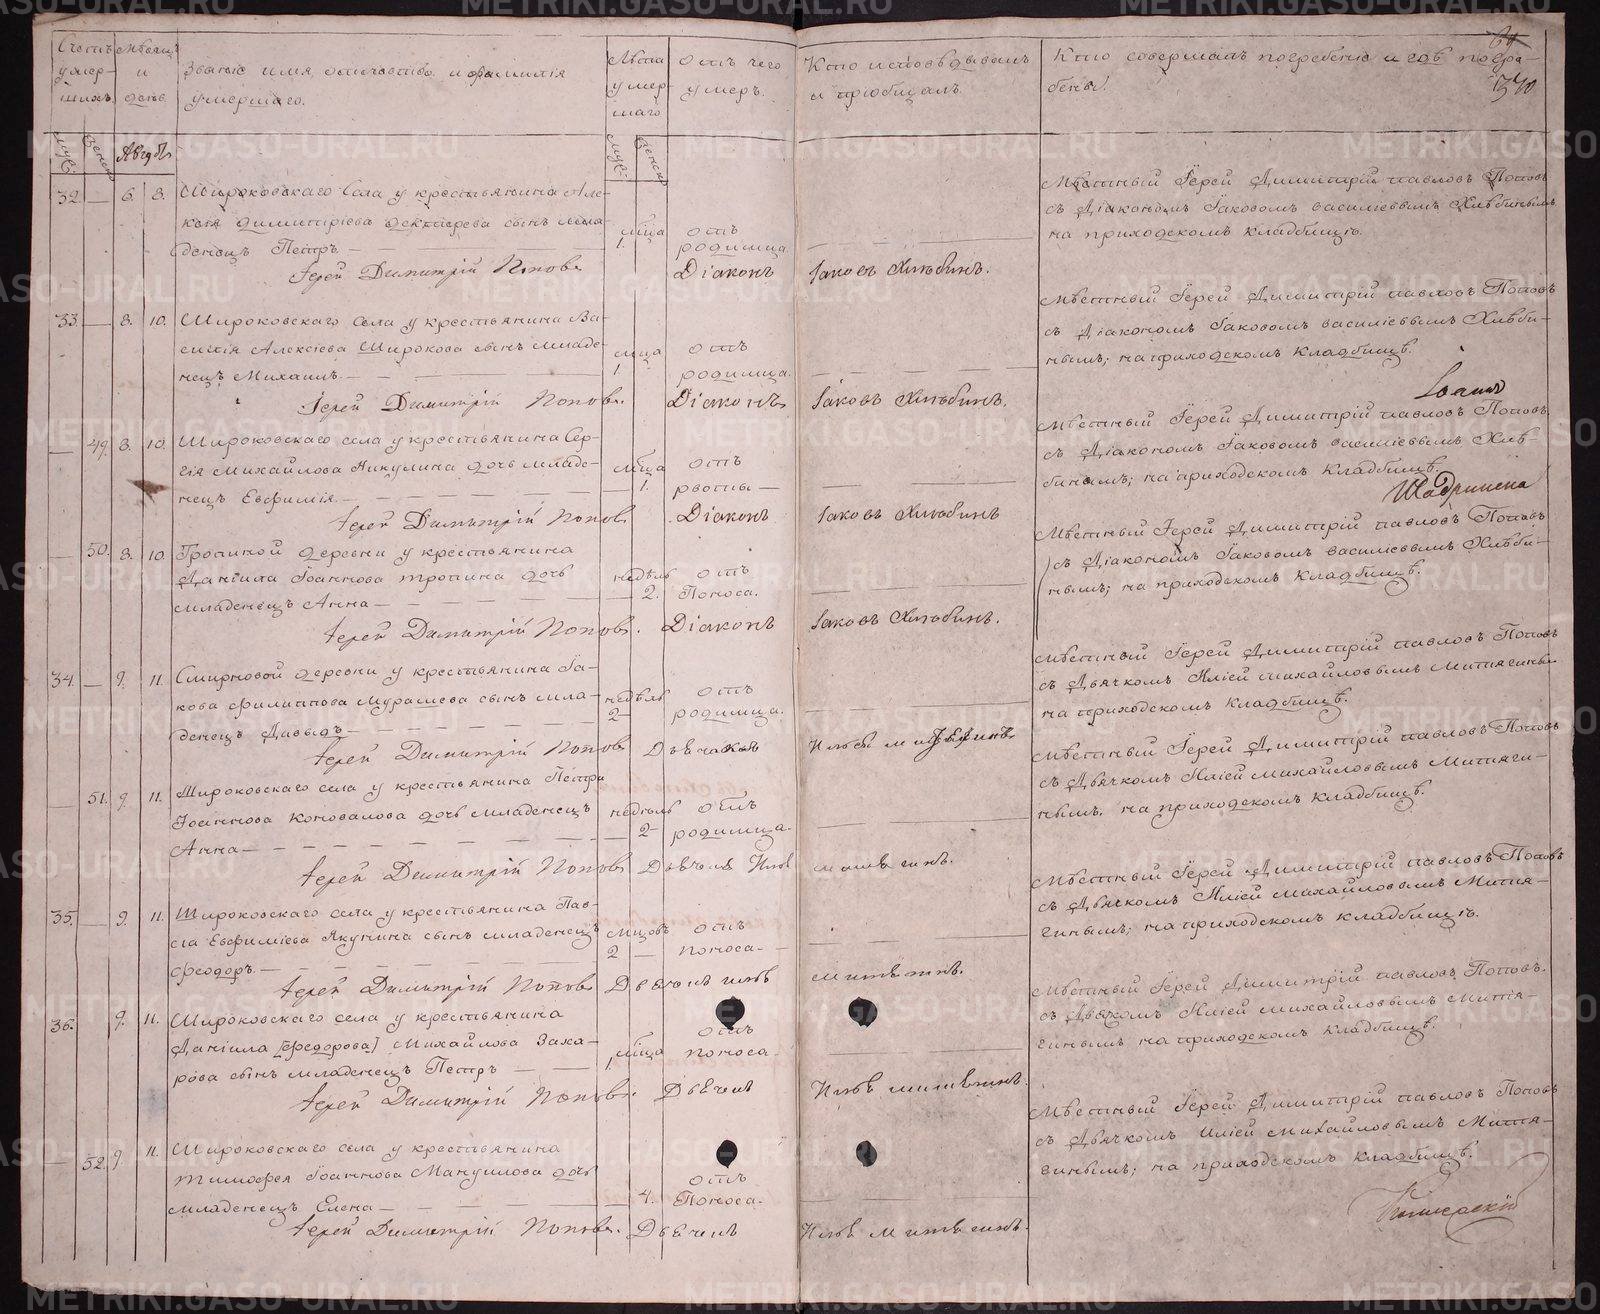 Счетъ умершихъ.
Мѣсяцъ и день.
Званіе имя, отечество. и фамилія
умершаго.
Лѣта умершаго
отъ чего
умеръ.
Кто исповѣдывалъ
и пріобщалъ.
Кто совершалъ погребеніе и гдѣ погре-
бены.
370
муж: женск. Августъ
муж: женск.
32. — 6. 8. Широковскаго Села у крестьянина Але-
ксія Димитріева сынъ мла-
денецъ Петръ —
мѣца 1.
отъ родимца.
Мѣстный Іерей Димитрій павловъ Поповъ
съ Діакономъ Іаковомъ василіевымъ Хлѣбинымъ
на приходскомъ кладбищѣ.
Іерей Димитрій Поповъ Діаконъ Іаковъ Хлѣбинъ.
33. — 8. 10. Широковскаго Села у крестьянина Ва-
силія Алексіева Широкова сынъ младе-
нецъ Михаилъ. —
мѣца 1.
отъ родимца.
Мѣстный Іерей Димитрій павловъ Поповъ
съ Діакономъ Іаковомъ василіевымъ Хлѣби-
нымъ; на приходскомъ кладбищѣ.
Іерей Димитрій Поповъ. Діаконъ Іаковъ Хлѣбинъ.
Іоаннъ
— 49. 8. 10. Широковскаго села у крестьянина Сер-
гія Михайлова Никулина дочь младе-
нецъ Евфимія. —
мѣца 1.
отъ рвоты —
Мѣстный Іерей Димитрій павловъ Поповъ,
съ Діакономъ Іаковомъ василіевымъ Хлѣ-
бинымъ; на приходскомъ кладбищѣ.
Іерей Димитрій Поповъ Діаконъ Іаковъ Хлѣбинъ
— 50. 8. 10. Тропиной деревни у крестьянина
Даніила Іоаннова тропина дочь
младенецъ Анна —
недѣль 2.
отъ Поноса.
Мѣстный Іерей Димитрій павловъ Поповъ
съ Діакономъ Іаковомъ василіевымъ Хлѣби-
нымъ; на приходскомъ кладбищѣ.
Іерей Димитрій Поповъ. Діаконъ Іаковъ Хлѣбинъ.
34. — 9. 11. Смирновой деревни у крестьянина Іа-
кова филиппова Мурашева сынъ мла-
денецъ Давыдъ —
недѣль 2
отъ родимца.
Мѣстный Іерей Димитрій павловъ Поповъ
съ Дьячкомъ Иліей михайловымъ
на приходскомъ кладбищѣ.
Іерей Димитрій Поповъ
— 51. 9. 11. Широковскаго села у крестьянина Петра
Іоаннова Коновалова дочь младенецъ
Анна —
недѣль 2
отъ родимца.
Мѣстный Іерей Димитрій павловъ Поповъ
съ Дьячкомъ Иліей михайловымъ Митяги-
нымъ. на приходскомъ кладбищѣ.
Іерей Димитрій Поповъ
35. — 9. 11. Широковскаго села у крестьянина Пав-
ла Евфиміева Якунина сынъ младенецъ
Феодоръ. —
мѣцовъ 2
отъ поноса. —
Мѣстный Іерей Димитрій павловъ Поповъ
съ Дьячкомъ Иліей михайловымъ Митя-
гинымъ; на приходскомъ кладбищѣ.
Іерей Димитрій Поповъ
36. 9. 11. Широковскаго села у крестьянина
Даніила [Феодорова] Михайлова Заха-
рова сынъ младенецъ Петръ —
мѣца 1
отъ поноса.
Мѣстный Іерей Димитрій павловъ Поповъ.
съ Дьячкомъ Иліей михайловымъ Митя-
гинымъ на приходскомъ кладбищѣ.
Іерей Димитрій Поповъ.
— 52. 9. 11. Широковскаго села у крестьянина
тимофея Іоаннова Мануилова дочь
младенецъ Елена —
4.
отъ Поноса.
Мѣстный Іерей Димитрій павловъ Поповъ
съ Дьячкомъ Иліей Михайловымъ Митя-
гинымъ; на приходскомъ кладбищѣ.
Іерей Димитрій Поповъ.
METRIKI.GASO-URAL.RU